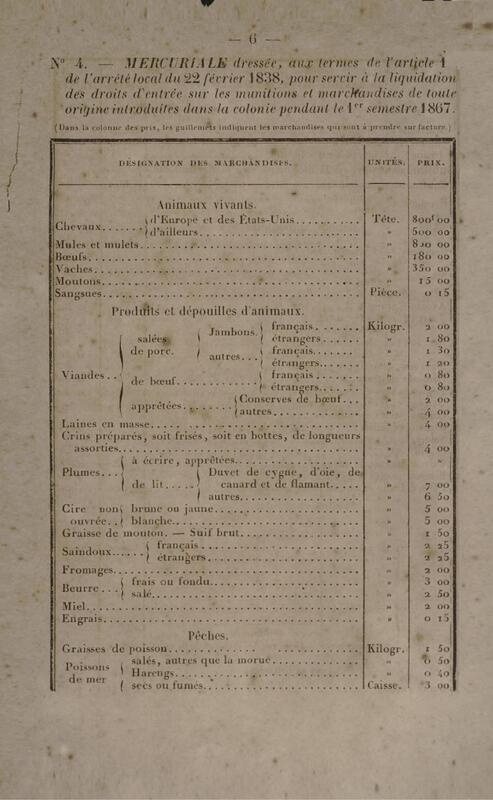 — 6 —
N° 4. — MERCURIALE dressée, aux termes de l'article 1
de l'arrêté local du 22 février 1838, pour servir à la liquidation
des droits d'entrée sur les munitions et marchandises de toute
origine introduites dans la colonie pendant le 1er semestre 1867.
(Dans la colonne des prix, les guillemets indiquent les marchandises qui sont à prendre sur facture.)
DÉSIGNATION DES MARCHANDISES. UNITÉS. PRIX.
Animaux vivants.
Chevaux....... d'Europe et des États-Unis........... Tête. 800f 00
d'ailleurs........................ " 500 00
Mules et mulets........................ " 800 00
Bœufs........................ " 180 00
Vaches........................ " 350 00
Moutons........................ " 15 00
Sangsues........................ Pièce. 0 15
Produits et dépouilles d'animaux.
Viandes.. salées de porc. Jambons. français....... Kilogr. 2 00
étrangers...... " 1 80
autres... français....... " 1 30
étrangers...... " 1 20
de bœuf............ français....... " 0 80
étrangers...... " 0 80
apprêtées........ Conserves de bœuf... " 2 00
autres............ " 4 00
Laines en masse........................ " 4 00
Crins préparés, soit frisés, soit en bottes, de longueurs
assorties........................ " 4 00
Plumes... à écrire, apprêtées............ " "
de lit..... Duvet de cygne, d'oie, de
canard et de flamant..... " 7 00
autres............ " 6 50
Cire non ouvrée.. brune ou jaune............ " 5 00
blanche............ " 5 00
Graisse de mouton. — Suif brut............ " 1 50
Saindoux..... français............ " 2 25
étrangers............ " 2 25
Fromages........................ " 2 00
Beurre... frais ou fondu............ " 3 00
salé............ " 2 50
Miel........................ " 2 00
Engrais........................ " 0 15
Pêches.
Graisses de poisson............ Kilogr. 1 50
Poissons de mer salés, autres que la morue............ " 0 50
Harengs............ " 0 40
secs ou fumés............ Caisse. 3 00